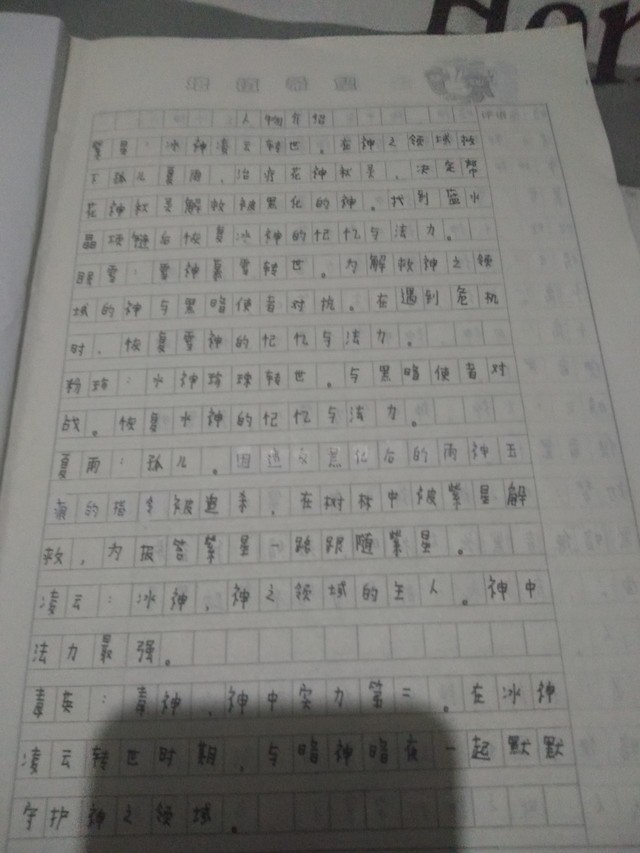 人物介绍
评语
紫星：冰神凌云转世。在神之领域救
下孤儿夏雨，治疗花神秋灵，决定帮
花神秋灵解救被黑化的神。找到蓝水
晶项链后恢复冰神的记忆与法力。
踩雪：雪神慕雪转世。为解救神之领
域的神与黑暗使者对抗。在遇到危机
时，恢复雪神的记忆与法力。
粉珞：水神珍珠转世。与黑暗使者对
战。恢复水神的记忆与法力。
夏雨：孤儿。因进入黑化后的雨神五
被追杀，在树林中被紫星解
救，为报答紫星一路跟随紫星。
凌云：冰神，神之领域的主人。神中
法力最强。
毒英：毒神，神中实力第二。在冰神
凌云转世时期，与暗神暗夜一起默默
守护神之领域。
Hon